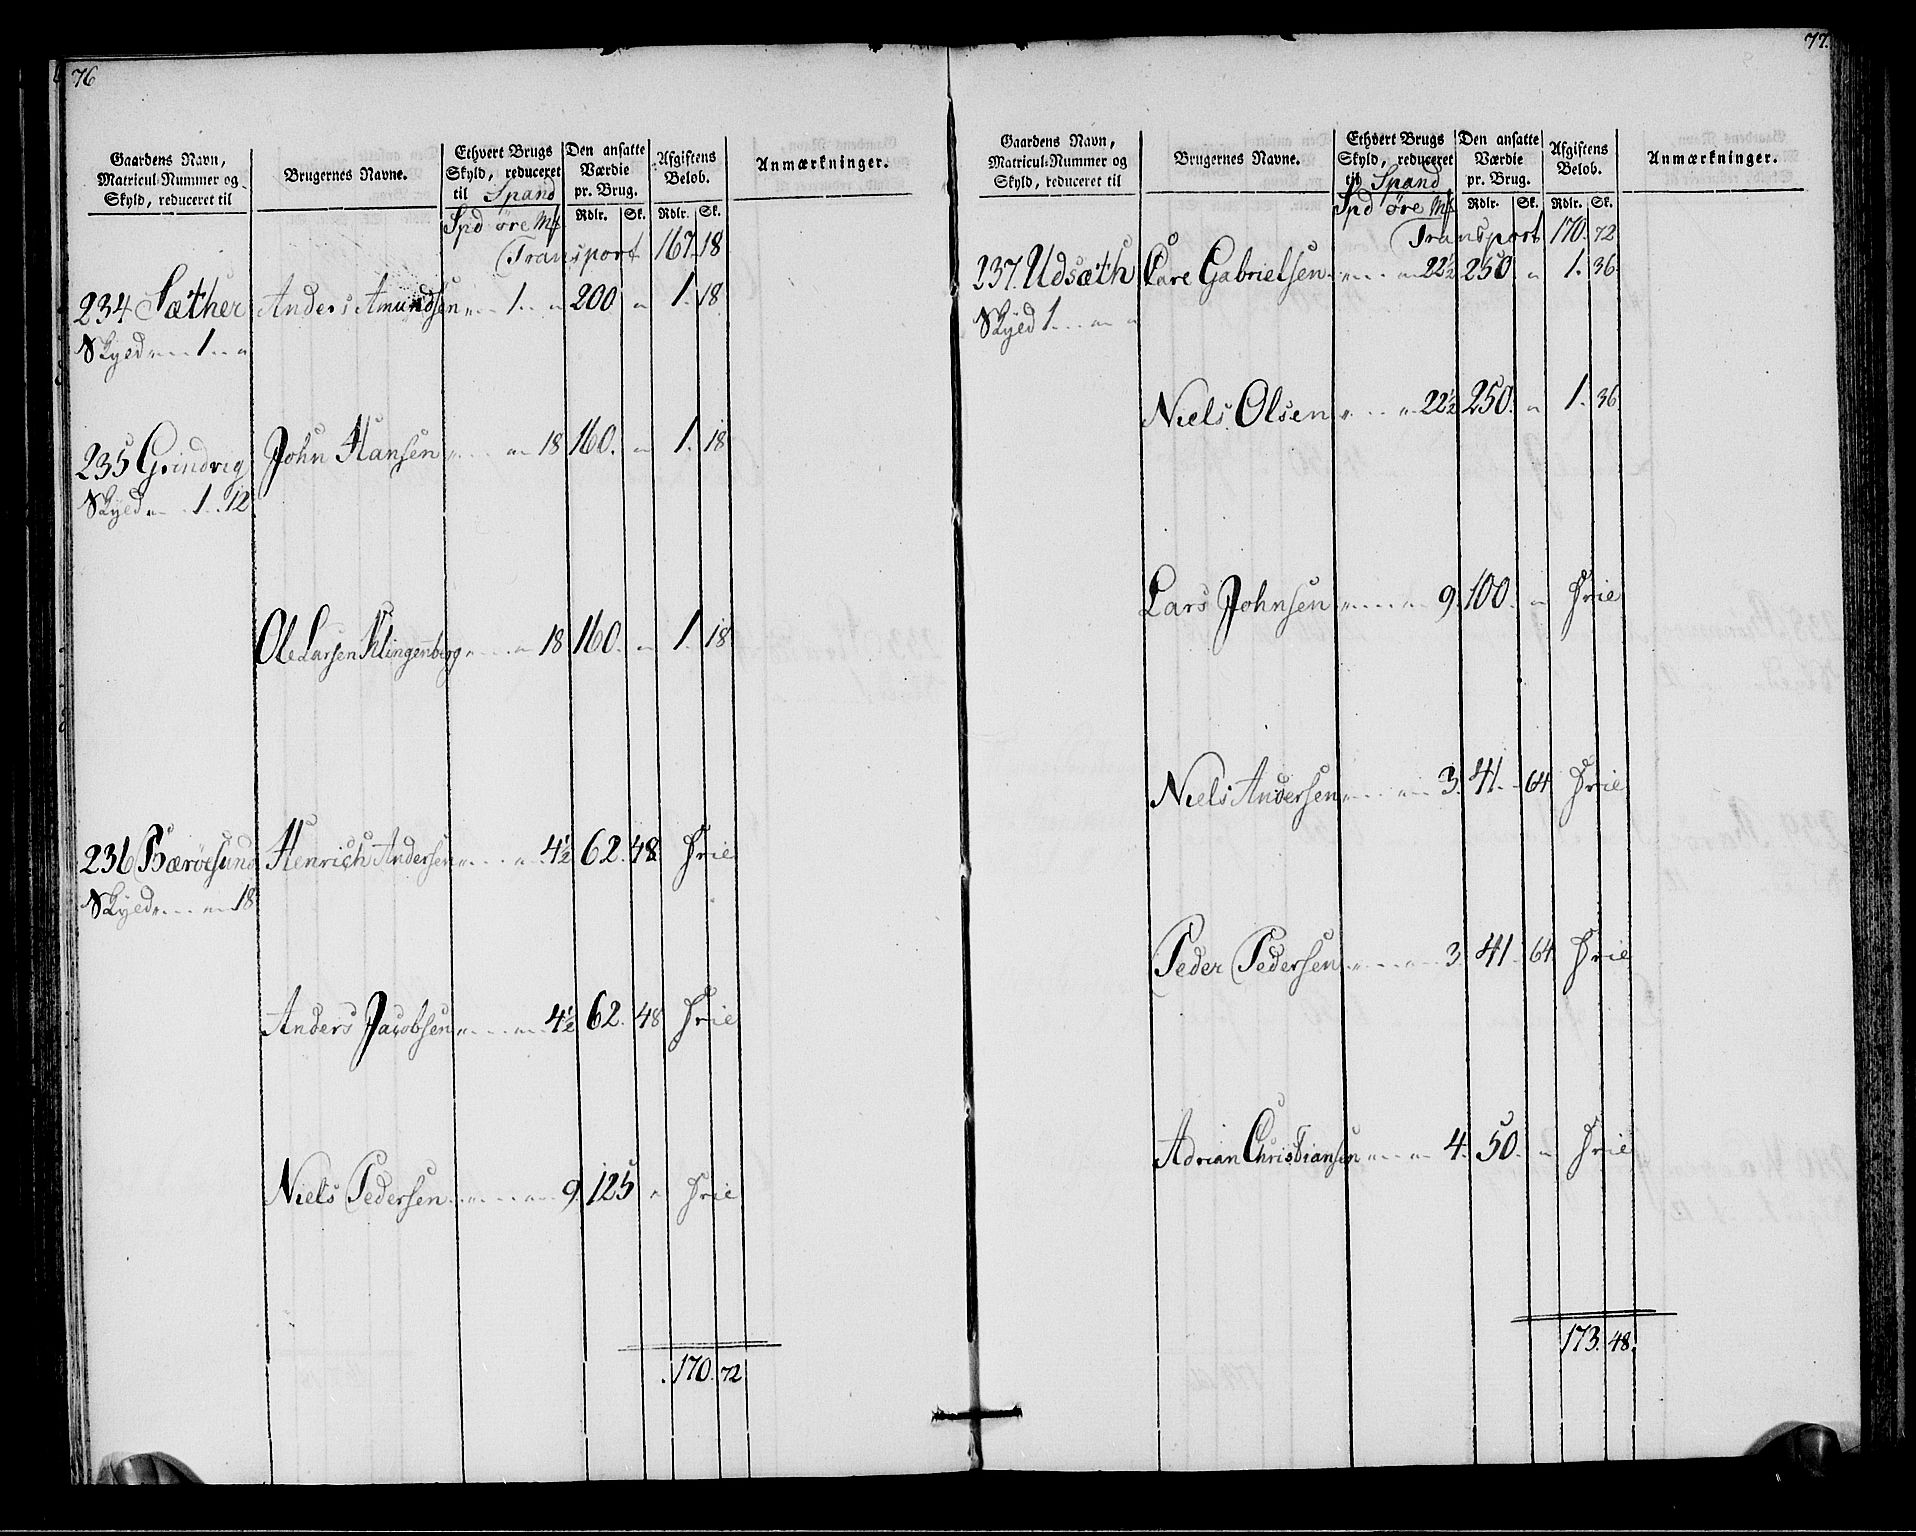 76
Gaardens Navn, Matricul-Nummer og Skyld, reduceret til | Brugernes Navne. | Ethvert Brugs Skyld, reduceret til Spand | Den ansatte Værdie pr. Brug. | Afgiftens Beløb. | Anmærkninger.
Spd øre Mk | Rdlr. | Sk. | Rdlr. | Sk.
Transport 167. 18
234 Sæther Anders Amundsen „ 1. „ 200 „ 1. 18
Skyld „ 1. „
235 Grindvig John Hansen „ „ 18 160. „ 1. 18
Skyld „ 1. 12
Ole Larsen Klingenberg „ „ 18 160. „ 1. 18
236 Bærøesund Henrich Andersen „ „ 4½ 62. 48 Frie
Skyld „ „ 18
Anders Jacobsen „ „ 4½ 62. 48 Frie
Niels Pedersen „ „ 9. 125 „ Frie
170. 72
77.
Gaardens Navn, Matricul-Nummer og Skyld, reduceret til | Brugernes Navne. | Ethvert Brugs Skyld, reduceret til Spand | Den ansatte Værdie pr. Brug. | Afgiftens Beløb. | Anmærkninger.
Spd øre Mk | Rdlr. | Sk. | Rdlr. | Sk.
Transport 170. 72
237. Udsæth Gabrielsen „ „ 22½ 250 „ 1. 36
Skyld 1 „ „
Niels Olsen „ „ 22½ 250. „ 1. 36
Lars Johnsen „ „ 9. 100. „ Frie
Niels Andersen „ „ 3. 41. 64 Frie
Peder Pedersen „ „ 3 41. 64 Frie
Adrian Christiansen „ „ 4. 50. „ Frie
173. 48.